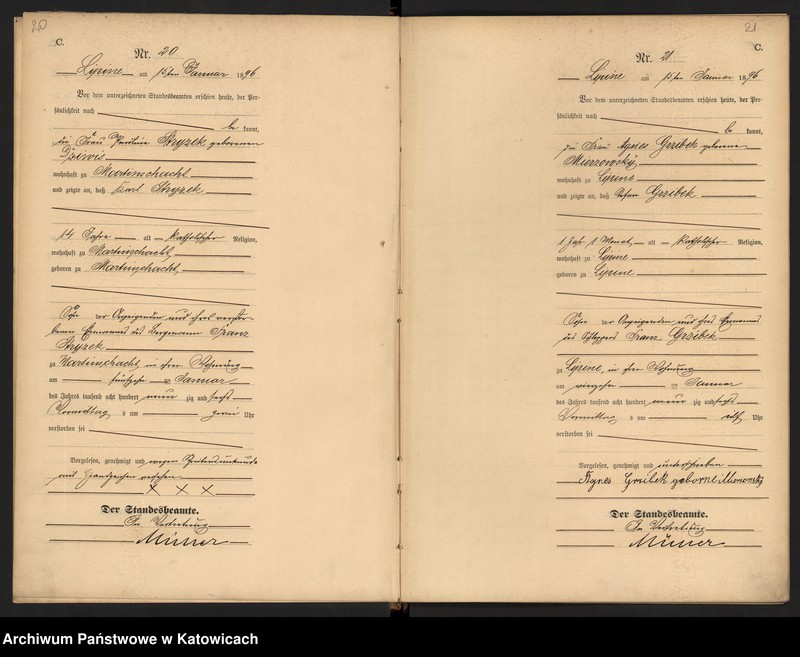 20
C.
Nr. 20
Lipine am 15ten Januar 1896
Vor dem unterzeichneten Standesbeamten erschien heute, der Per-
sönlichkeit nach
be kannt,
die Frau Pauline Stryzek geborenen
Dziwis
wohnhaft zu Martinschacht
und zeigte an, daß Karl Stryzek
14 Jahre alt katholischer Religion,
wohnhaft zu Martinschacht
geboren zu Martinschacht
Sohn der Anzeigenden und ihres verstor-
benen Ehemannes des Bergmann Franz
Stryzek
zu Martinschacht, in ihrer Wohnung
am fünfzehn ten Januar
des Jahres tausend acht hundert neun zig und sechs
Vormittag s um zwei Uhr
verstorben sei
Vorgelesen, genehmigt und wegen Schreibensunkunde
mit Handzeichen versehen
X X X
Der Standesbeamte.
In Vertretung
Müller
21
C.
Nr. 21
Lipine am 15ten Januar 1896
Vor dem unterzeichneten Standesbeamten erschien heute, der Per-
sönlichkeit nach
be kannt,
die Frau Agnes Grzibek geborene
Mierzowsky
wohnhaft zu Lipine
und zeigte an, daß Stefan Grzibek
1 Jahr 1 Monat alt katholischer Religion,
wohnhaft zu Lipine
geboren zu Lipine
Sohn der Anzeigenden und ihres Ehemannes
des Schleppers Franz Grzibek
zu Lipine, in ihrer Wohnung
am vierzehn ten Januar
des Jahres tausend acht hundert neun zig und sechs
Vormittag s um elf Uhr
verstorben sei
Vorgelesen, genehmigt und unterschrieben
Agnes Grzibek geborne Mierowsky
Der Standesbeamte.
In Vertretung
Müller
Archiwum Państwowe w Katowicach